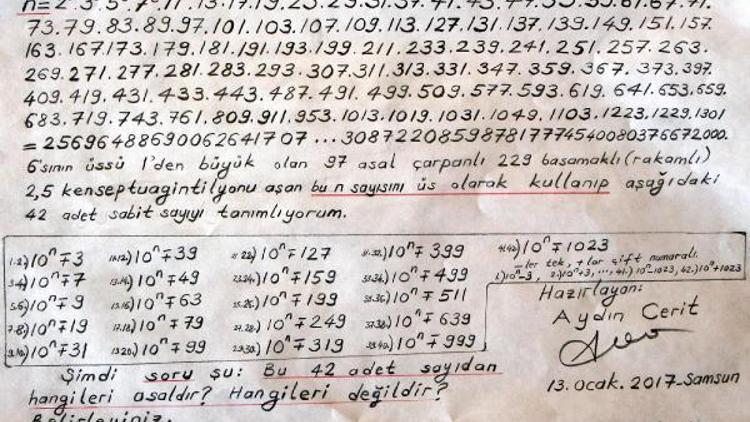 73.79.83.89.97.101.103.107.109.113.127.131.137.139.149.151.157.
163.167.173.179.181.191.193.199.211.233.239.241.251.257.263.
269.271.277.281.283.293.307.311.313.331.347.359.367.373.397.
409.419.431.433.443.487.491.499.509.577.593.619.641.653.659.
683.719.743.761.809.911.953.1013.1019.1031.1049.1103.1223.1229.1301
=25696488690062641707...308722085987817774540080376672000.
6'sının üssü 1'den büyük olan 97 asal çarpanlı 229 basamaklı (rakamlı)
2,5 kenseptuagintilyonu aşan bu n sayısını üs olarak kullanıp aşağıdaki
42 adet sabit sayıyı tanımlıyorum.
1.2.)10ⁿ∓3 11.12.)10ⁿ∓39 21.22.)10ⁿ∓127 31.32.)10ⁿ∓399 41.42.)10ⁿ∓1023
3.4.)10ⁿ∓7 13.14.)10ⁿ∓49 23.24.)10ⁿ∓159 33.34.)10ⁿ∓499 -ler tek, +lar çift numaralı.
5.6.)10ⁿ∓9 15.16.)10ⁿ∓63 25.26.)10ⁿ∓199 35.36.)10ⁿ∓511 1.)10ⁿ-3, 2.)10ⁿ+3, ..., 41.)10ⁿ-1023, 42.)10ⁿ+1023
7.8.)10ⁿ∓19 17.18.)10ⁿ∓79 27.28.)10ⁿ∓249 37.38.)10ⁿ∓639
9.10.)10ⁿ∓31 19.20.)10ⁿ∓99 29.30.)10ⁿ∓319 39.40.)10ⁿ∓999
Hazırlayan:
Aydın Cerit
13.Ocak.2017-Samsun
Şimdi soru şu: Bu 42 adet sayıdan
hangileri asaldır? Hangileri değildir?
Belirleyiniz.